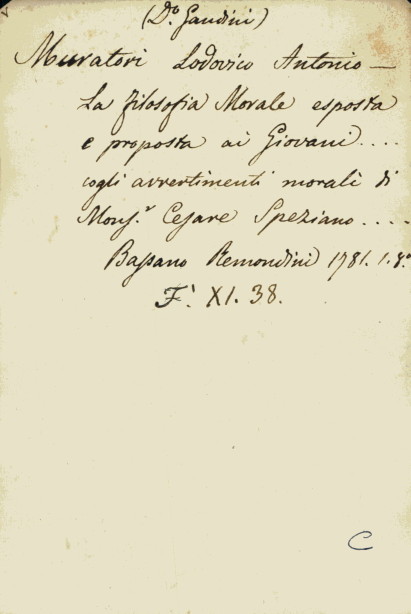 (D.º Gandini)
Muratori Lodovico Antonio —
La Filosofia Morale esposta
e proposta ai Giovani....
cogli avvertimenti morali di
Mons.r Cesare Speziano....
Bassano Remondini 1781. 1. 8.º
F. XI. 38.
C